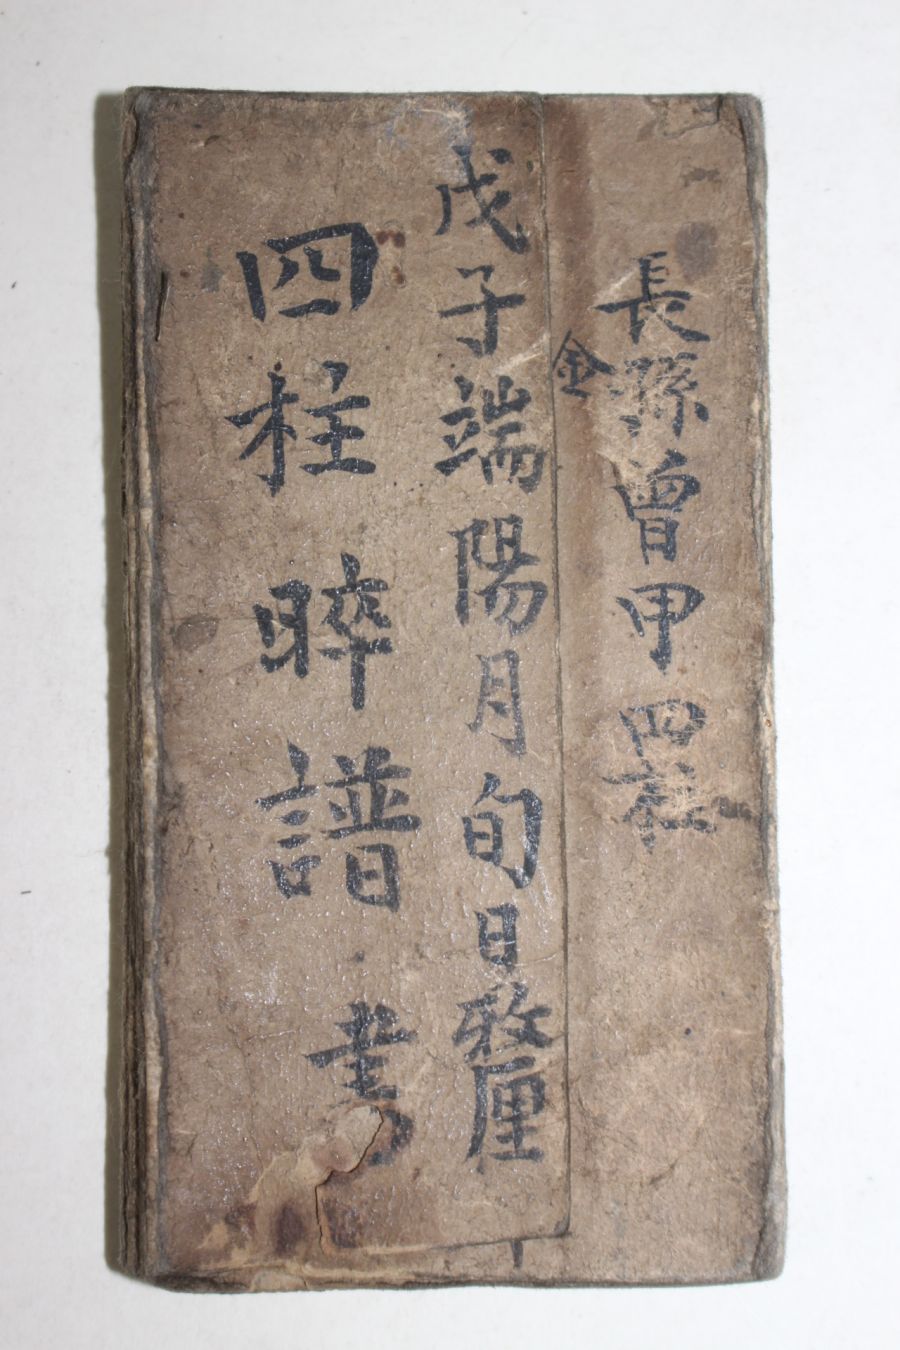 長孫曾甲四柱
金
戊子端陽月旬日敎厘
四柱晬譜書